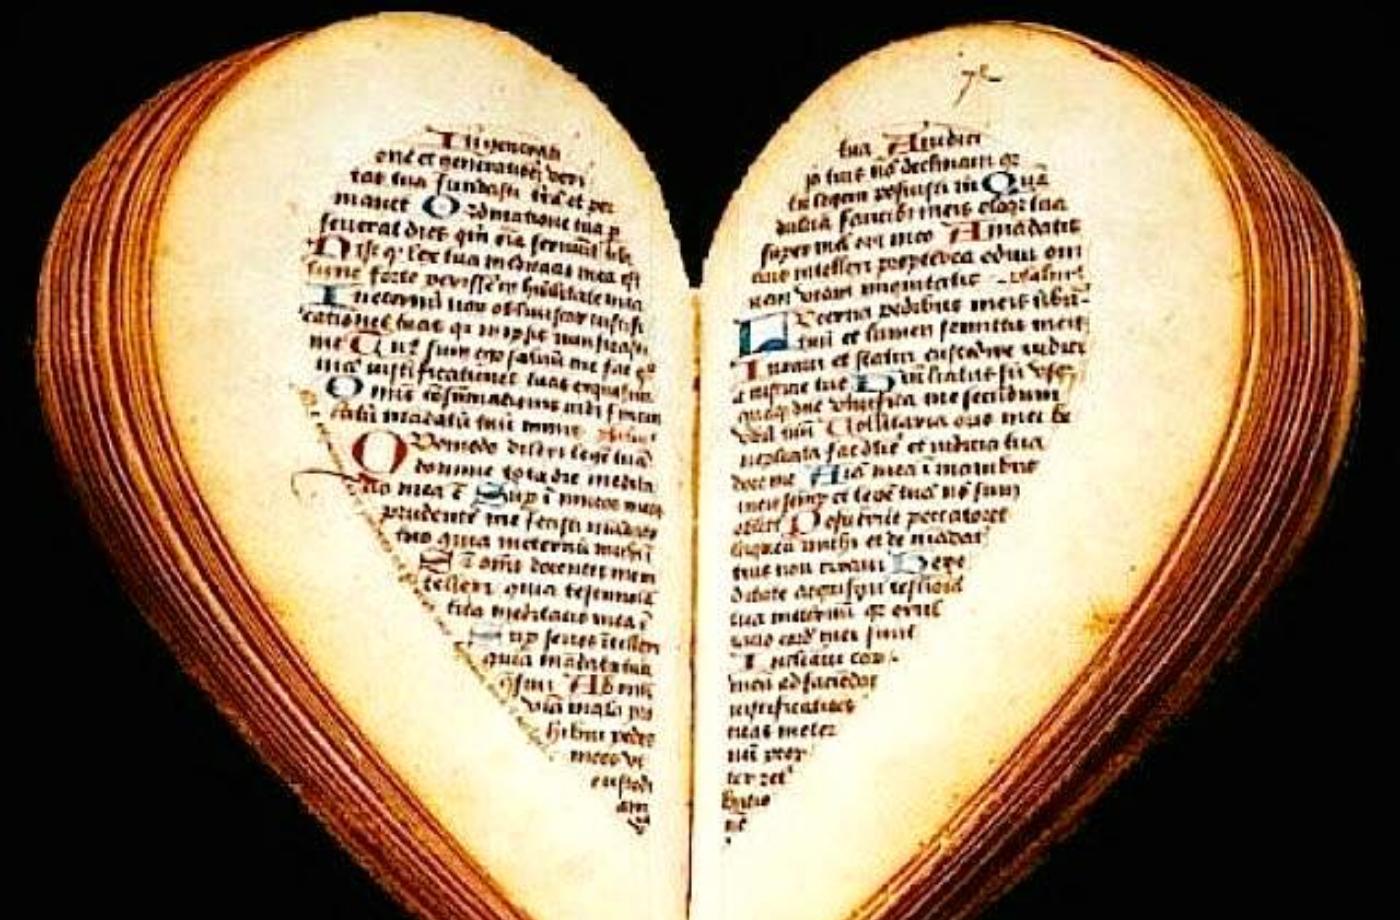 one et generatione veri
tas tua fundasti trã et per
manet Ordinatione tua p
seuerat dies qm̃ oĩa seruiũt tibi
Nisi qʼ lex tua meditatio mea est
tunc forte perissẽ in hũilitate mea
In eternũ non obliuiscar iustifi
cationes tuas qr in ipsis uiuificasti
me Tuus sum ego saluũ me fac qm̃
iustificationes tuas exquisiui
Omnis cõsũmationis uidi finem
latũ mãdatũ tuũ nimis
Quomodo dilexi legẽ tuã
domine tota die medita
tio mea ẽ Sup ĩimicos meos
prudentẽ me fecisti mãdato
tuo quia in eternũ michi ẽ
Sup oms docentes me in
tellexi quia testimonia
tua meditatio mea ẽ
Sup senes ĩtellexi
quia mãdata tua
qsiui Ab omi
via mala p
hibui pedes
meos vt
custodi
am
tua A iudici
js tuis nõ declinaui qr
tu legem posuisti m̃ Quã
dulcia faucibʼ meis eloqʼa tua
super mel ori meo A mãdatis
tuis intellexi propterea odiui om
nem viam iniquitatis
Lucerna pedibus meis verbũ
tuũ et lumen semitis meis
Iuraui et statui custodire iudici
a iustitie tue Humiliatus sũ vsq
quaqʒ dne viuifica me secundum
verbũ tuũ Voluntaria oris mei be
neplacita fac dñe et iudicia tua
doce me Aĩa mea ĩ manibus
meis semp et legẽ tuã nõ sum
oblitʼ Posuerũt peccatores
laqueũ michi et de mãdatis
tuis non erraui Here
ditate acquisiui testimõia
tua in eternũ qr exul
tatio cordʼ mei sunt
Inclinaui cor
meũ ad faciẽdas
iustificatiões
tuas in eter
nũ propter
retri
butio
nẽ